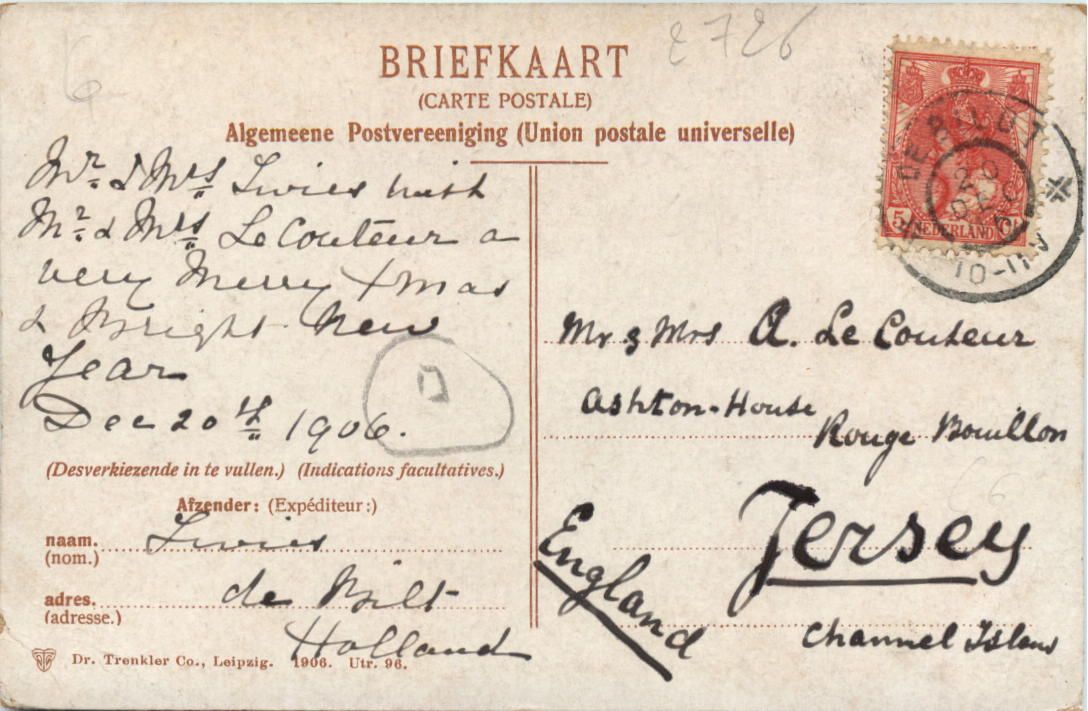 BRIEFKAART
(CARTE POSTALE)
Algemeene Postvereeniging (Union postale universelle)
2726
6
DE BILDT
20
DEC
10-11V
5 Ct
NEDERLAND
Mr. & Mrs Swies wish
Mr. & Mrs Le Couteur a
very Merry Xmas
& Bright New
Year
Dec 20th 1906.
(Desverkiezende in te vullen.) (Indications facultatives.)
Afzender: (Expéditeur:)
naam. Swies
(nom.)
adres. de Bilt
(adresse.)
Holland
Dr. Trenkler Co., Leipzig. 1906. Utr. 96.
Mr & Mrs A. Le Couteur
Ashton-House
Rouge Bouillon
Jersey
England
Channel Islans